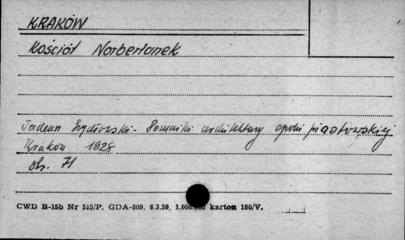 KRAKÓW
Kościół Norbertanek
Tadeusz Szydłowski - Pomniki architektury epoki piastowskiej
Kraków 1928
str. 71
CWD B-15b Nr 515/P. GDA-809. 6.3.59. 1.000.000 karton 180/V.